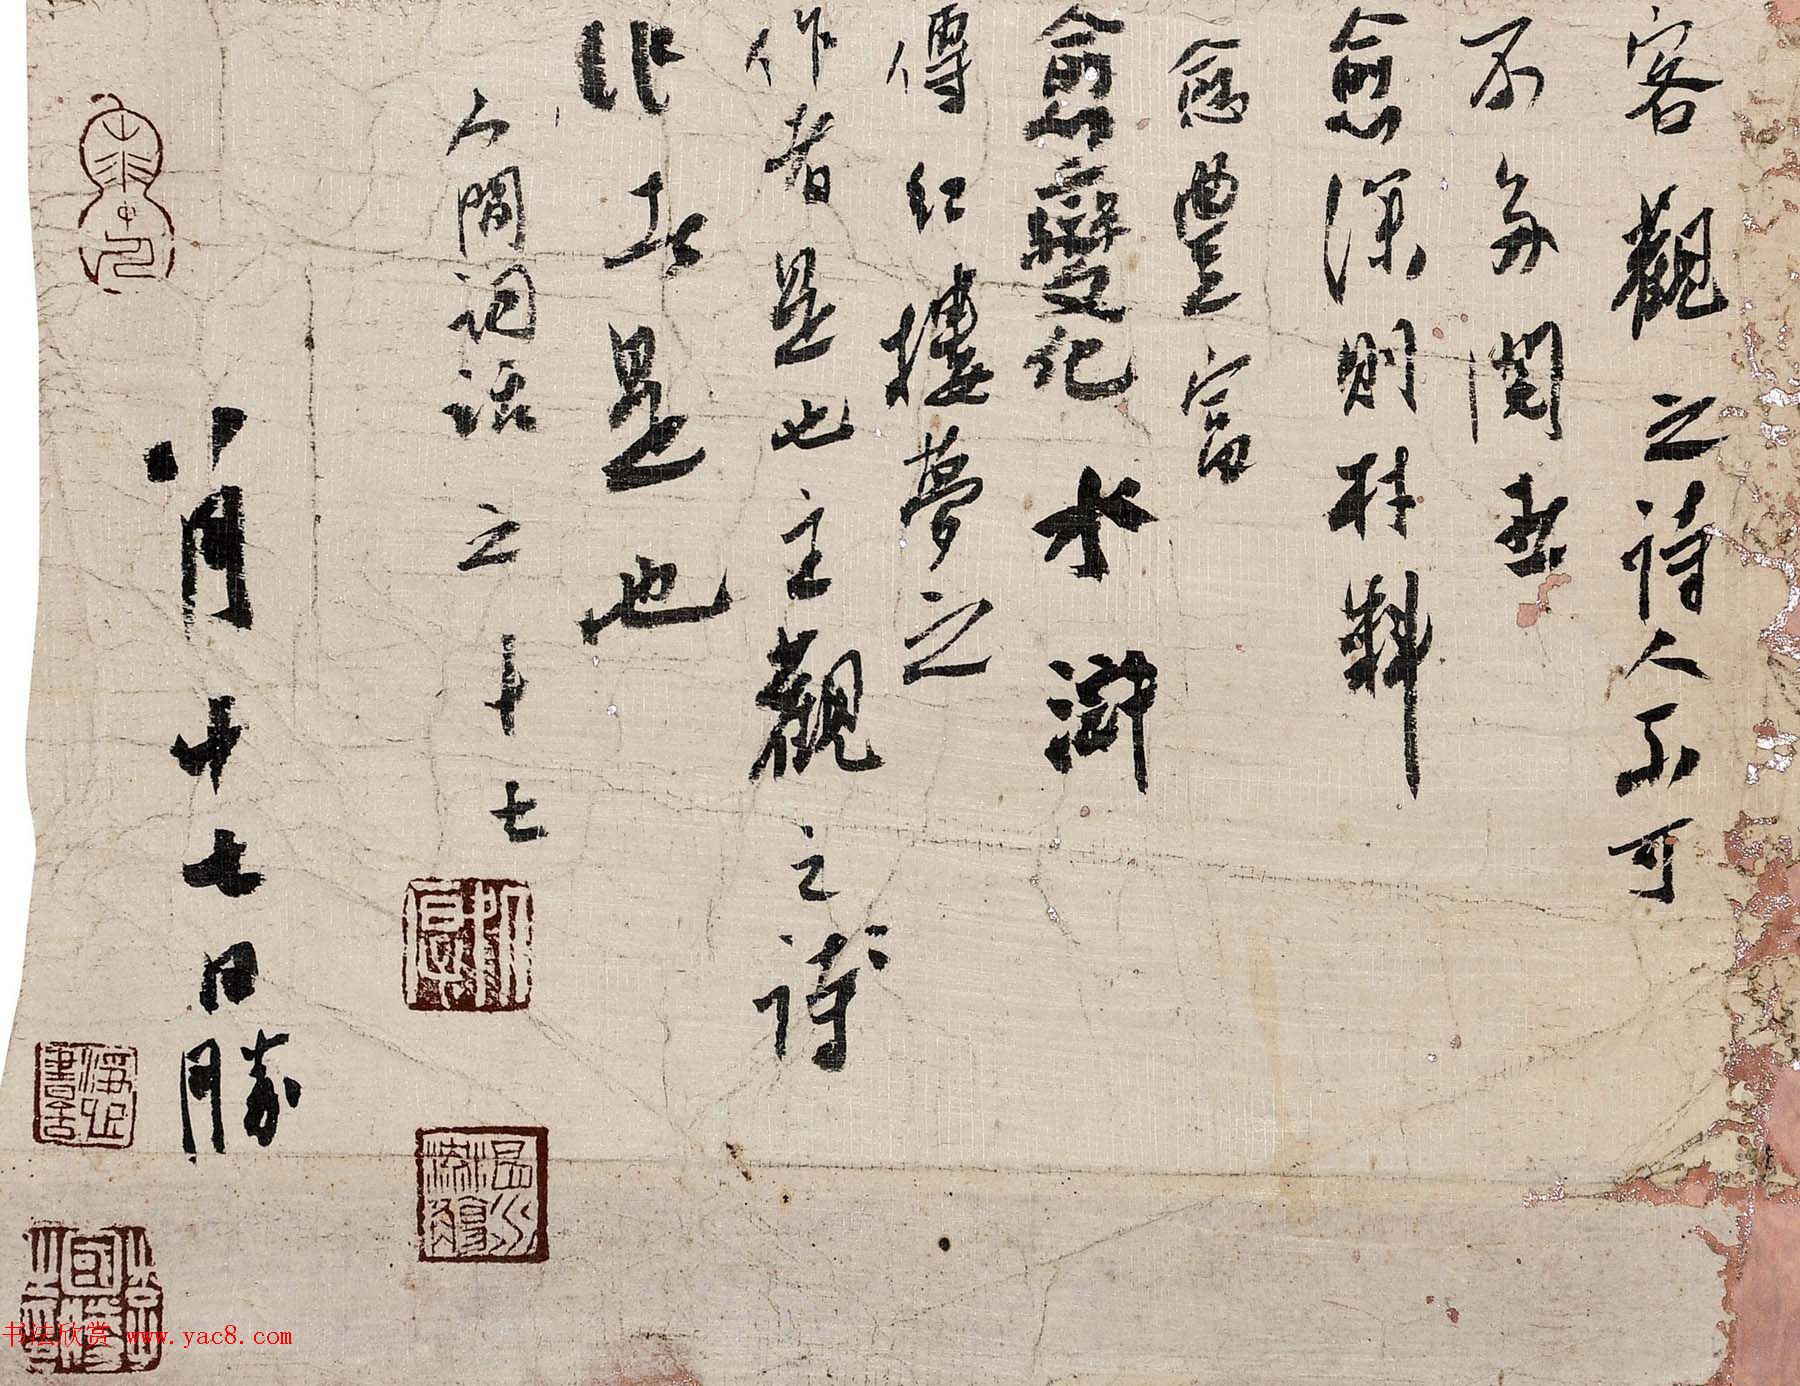 客觀之詩人不可
不多閱世
愈深則材料
愈豐富
愈變化水滸
傳紅樓夢之
作者是也主觀之詩
是也
人間詞話之十七
八月十七日勝
书法欣赏 www.yac8.com